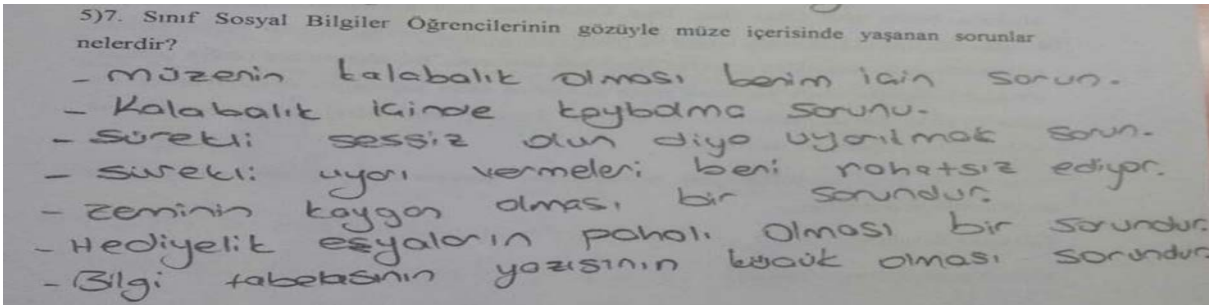 5)7. Sınıf Sosyal Bilgiler Öğrencilerinin gözüyle müze içerisinde yaşanan sorunlar
nelerdir?
- müzenin kalabalık olması benim için sorun.
- Kalabalık içinde kaybolma sorunu.
- Sürekli sessiz olun diye uyarılmak sorun.
- sürekli uyarı vermeleri beni rahatsız ediyor.
- zeminin kaygan olması bir sorundur.
- Hediyelik eşyaların pahalı olması bir sorundur.
- Bilgi tabelasının yazısının küçük olması sorundur.